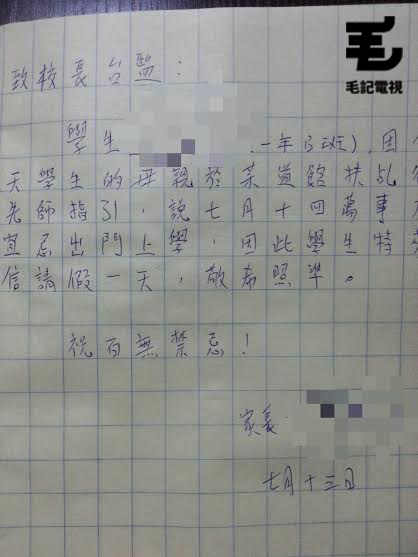 毛
毛記電視
致校長台監：
學生 一年B班），因
天學生的母親於某道館扶乩
先師指引，說七月十四萬事不
宜忌出門上學，因此學生特
信請假一天，敬希照準。
祝百無禁忌！
家長：
七月十三日